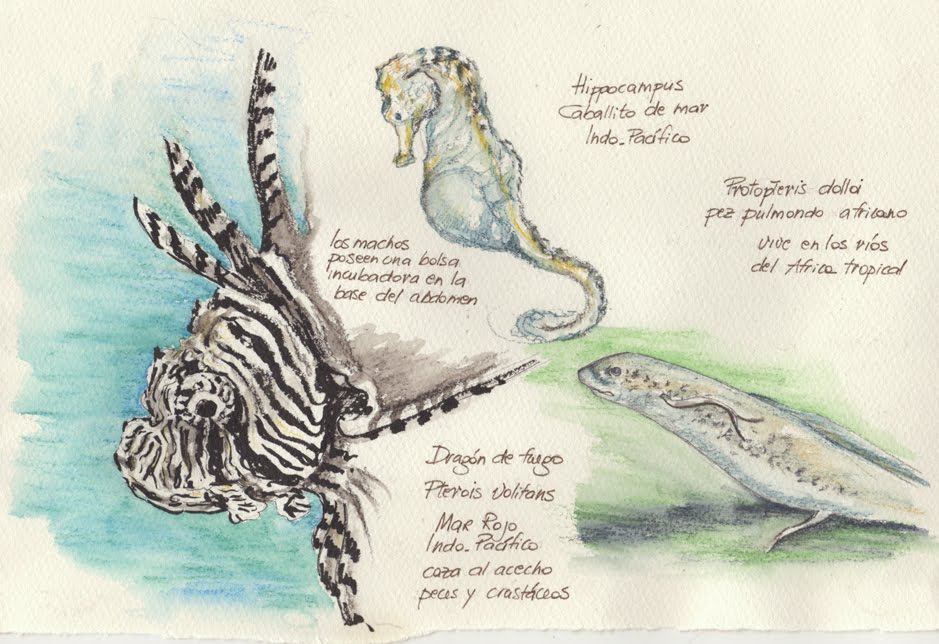 Hippocampus
Caballito de mar
Indo-Pacífico
Protopteris dolloi
pez pulmondo africano
vive en los ríos
del Africa tropical
los machos
poseen una bolsa
incubadora en la
base del abdomen
Dragón de fuego
Pterois Volitans
Mar Rojo
Indo-Pacífico
caza al acecho
peces y crastáceos